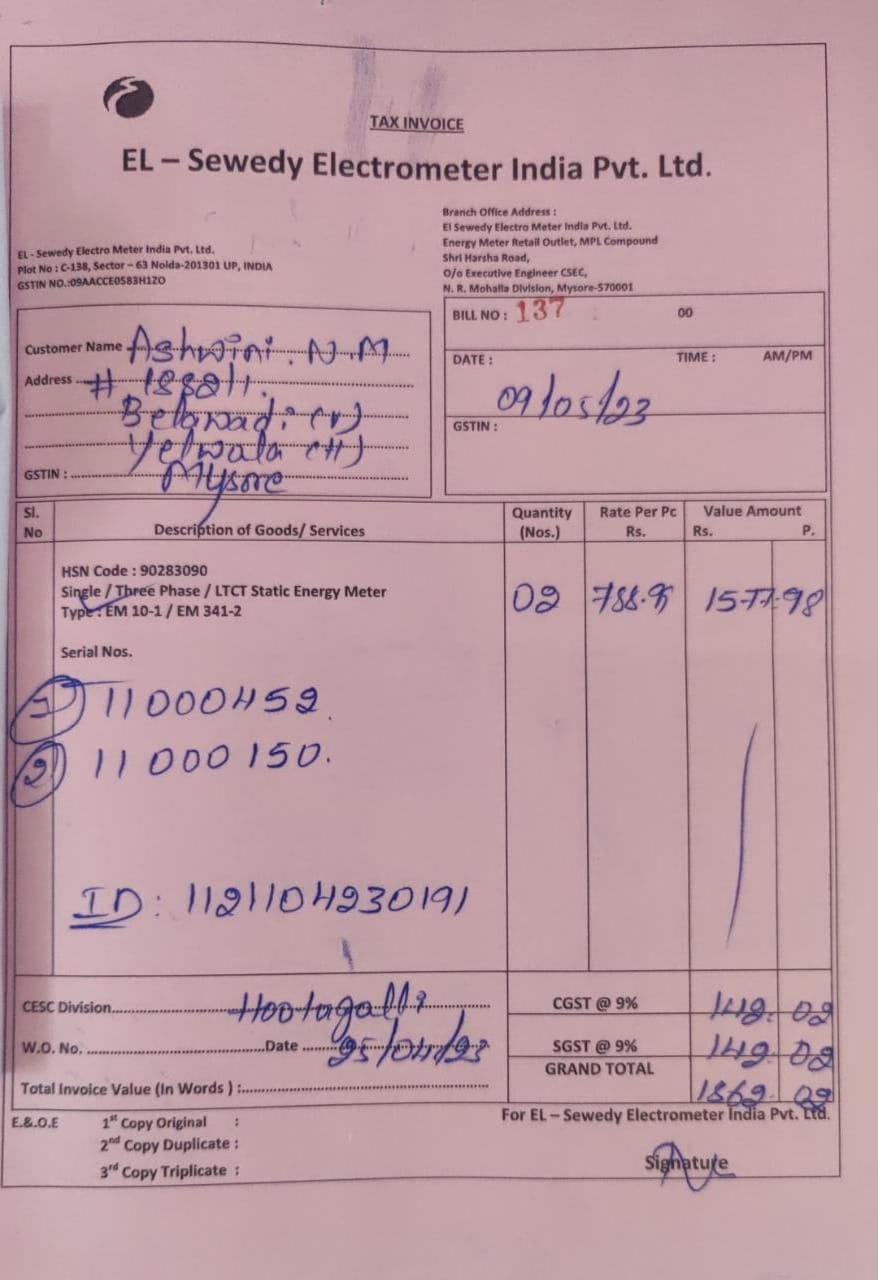 TAX INVOICE
EL – Sewedy Electrometer India Pvt. Ltd.
EL - Sewedy Electro Meter India Pvt. Ltd.
Plot No : C-138, Sector – 63 Noida-201301 UP, INDIA
GSTIN NO.:09AACCE0583H1ZO
Branch Office Address :
El Sewedy Electro Meter India Pvt. Ltd.
Energy Meter Retail Outlet, MPL Compound
Shri Harsha Road,
O/o Executive Engineer CSEC,
N. R. Mohalla Division, Mysore-570001
Customer Name Ashwini. N.M
Address # 1882/1.
Belawadi (v)
Yelwala (H)
GSTIN : Mysore
BILL NO : 137 00
DATE : TIME : AM/PM
09/05/23
GSTIN :
Sl. No Description of Goods/ Services Quantity (Nos.) Rate Per Pc Rs. Value Amount Rs. P.
HSN Code : 90283090
Single / Three Phase / LTCT Static Energy Meter 02 788.95 1577.98
Type : EM 10-1 / EM 341-2
Serial Nos.
1) 11000452.
2) 11000150.
ID: 1121104230191
CESC Division Hootagalli CGST @ 9% 142.02
W.O. No. Date 25/04/23 SGST @ 9% 142.02
GRAND TOTAL 1862.02
Total Invoice Value (In Words ) :
E.&.O.E 1st Copy Original :
2nd Copy Duplicate :
3rd Copy Triplicate :
For EL – Sewedy Electrometer India Pvt. Ltd.
Signature